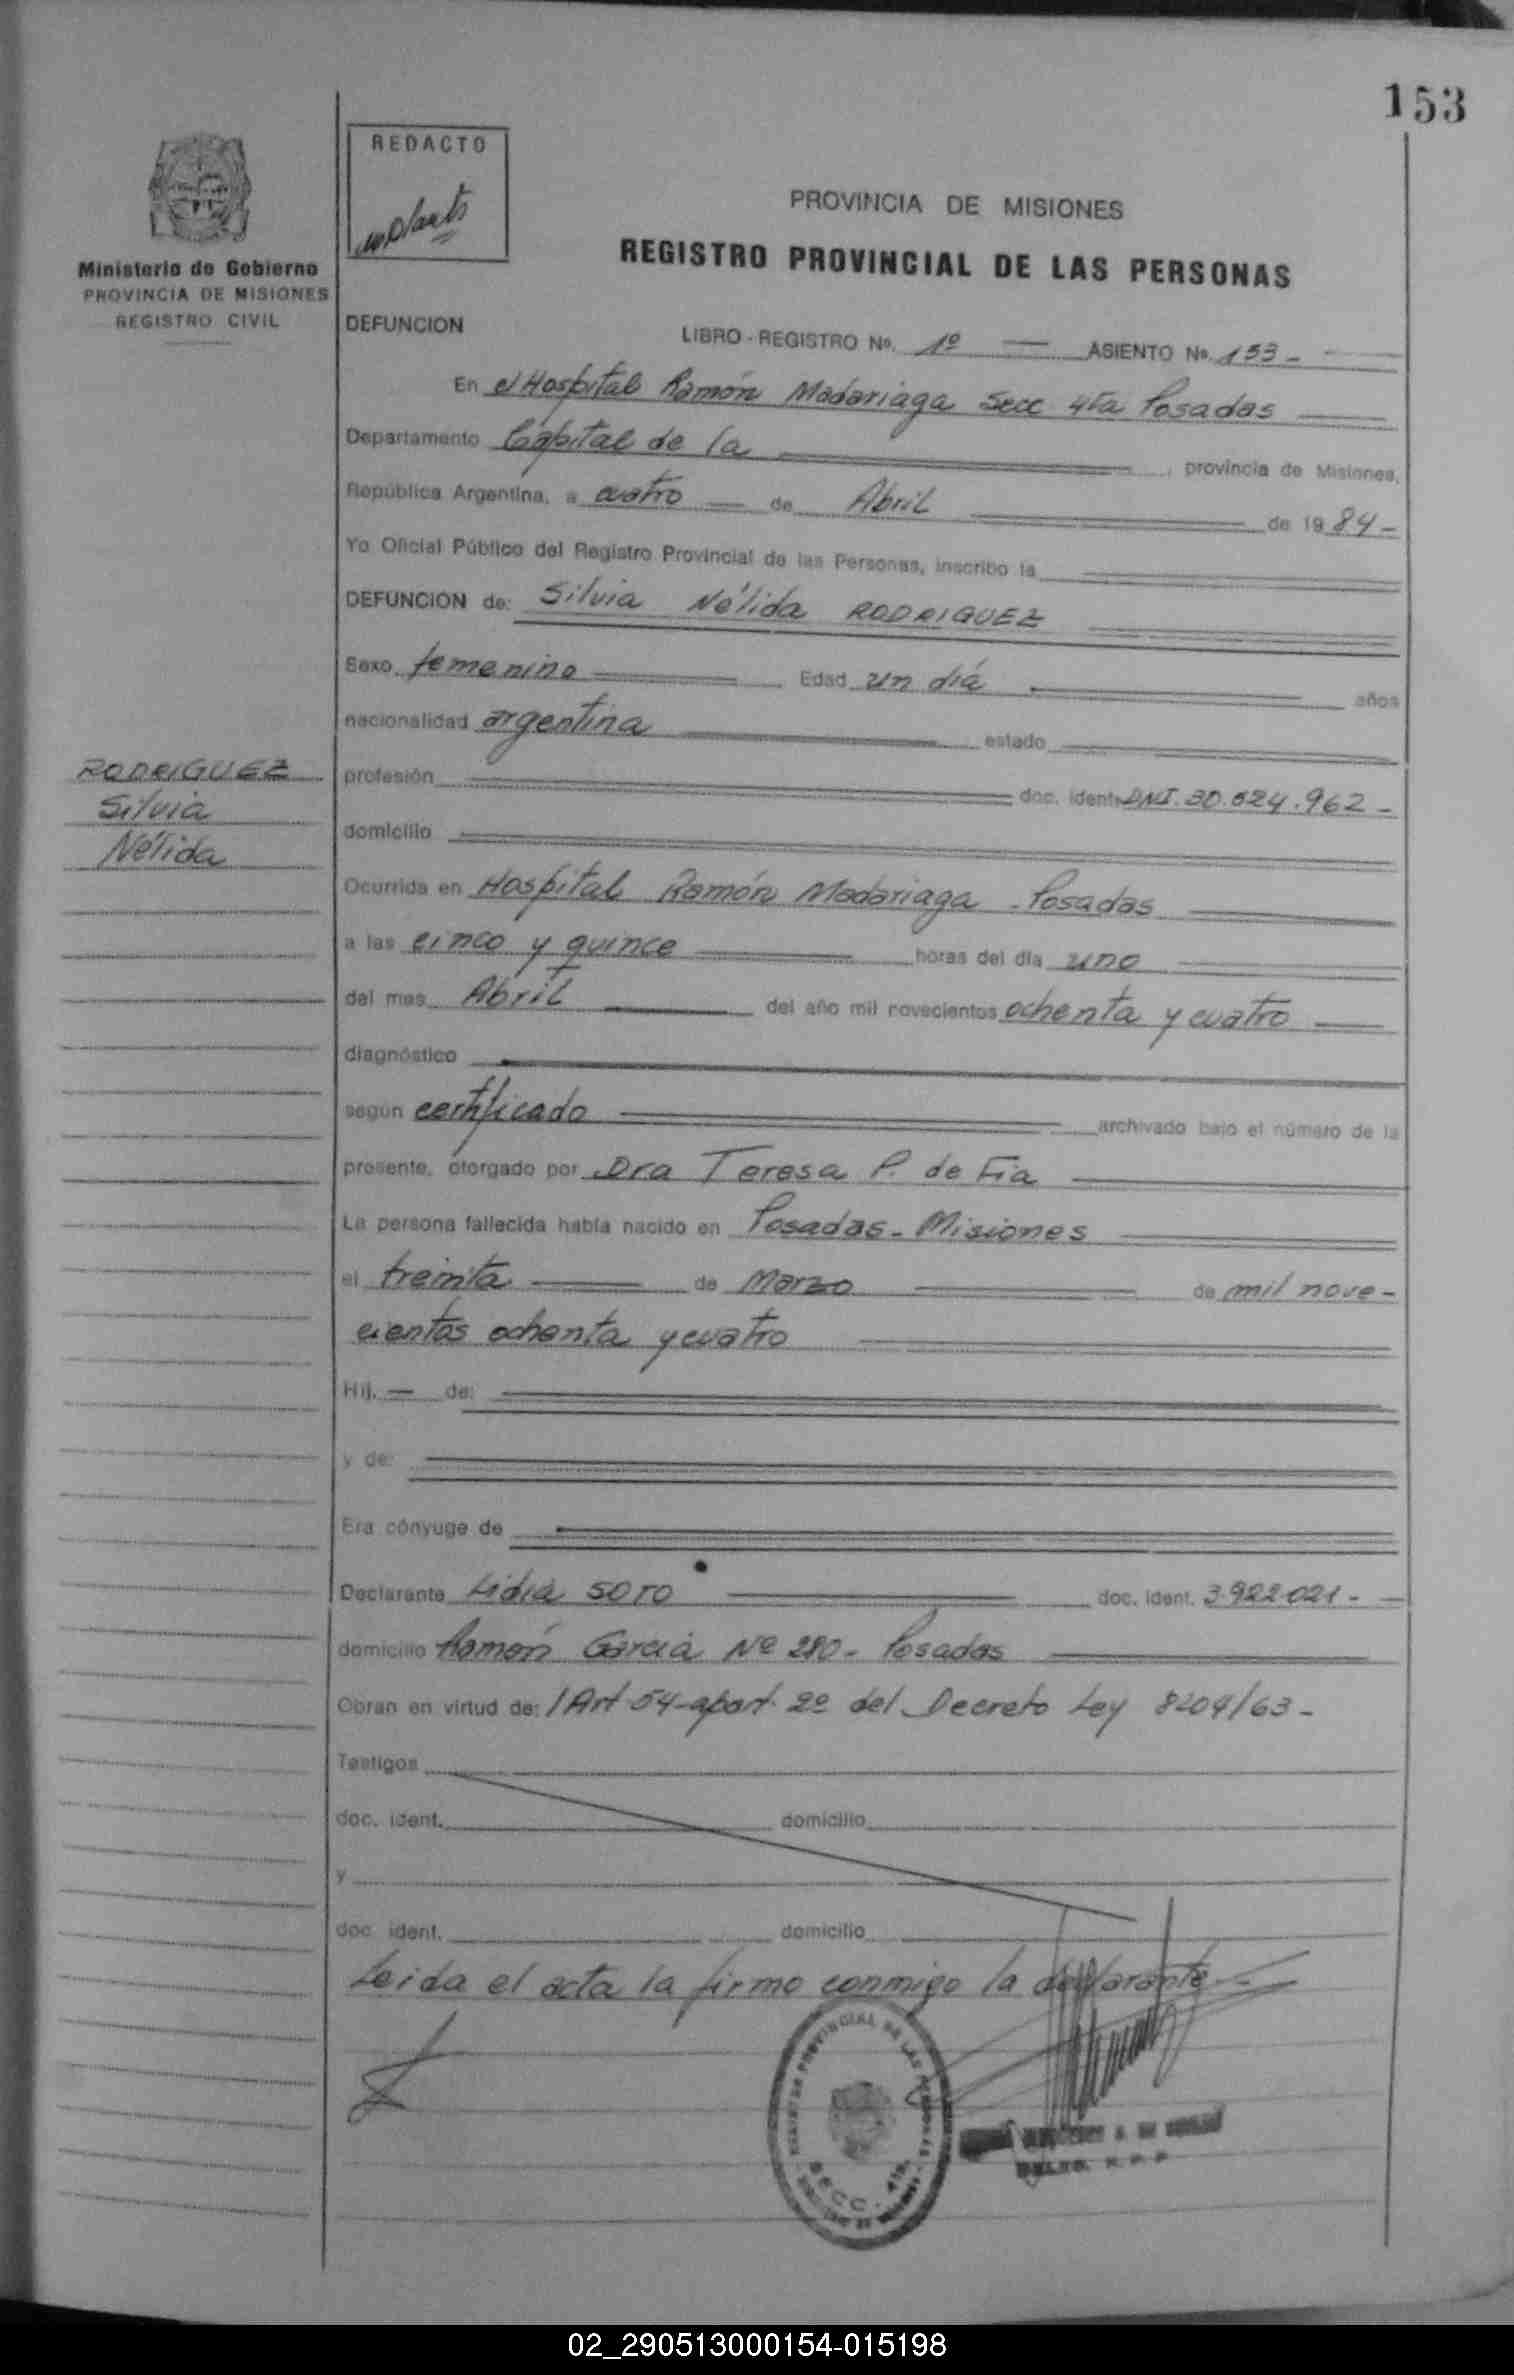 153
REDACTO
PROVINCIA DE MISIONES
REGISTRO PROVINCIAL DE LAS PERSONAS
Ministerio de Gobierno
PROVINCIA DE MISIONES
REGISTRO CIVIL
DEFUNCION LIBRO - REGISTRO No. 1º ASIENTO No. 153 -
En el Hospital Ramón Madariaga Secc 4ta Posadas
Departamento Capital de la , provincia de Misiones,
República Argentina, a cuatro de Abril de 19 84 -
Yo Oficial Público del Registro Provincial de las Personas, inscribo la
DEFUNCION de: Silvia Nélida RODRIGUEZ
Sexo femenino Edad un día años
nacionalidad argentina estado
RODRIGUEZ
Silvia
Nélida
profesión doc. ident. DNI. 30.524.962 -
domicilio
Ocurrida en Hospital Ramón Madariaga - Posadas
a las cinco y quince horas del día uno
del mes Abril del año mil novecientos ochenta y cuatro
diagnóstico
según certificado archivado bajo el número de la
presente, otorgado por Dra Teresa P. de Fia
La persona fallecida había nacido en Posadas - Misiones
el treinta de Marzo de mil nove-
cientos ochenta y cuatro
Hij. — de:
y de:
Era cónyuge de
Declarante Lidia SOTO doc. ident. 3.922.021 -
domicilio Ramón García Nº 280 - Posadas
Obran en virtud de: / Art 54 - apart. 2º del Decreto Ley 8204/63 -
Testigos
doc. ident. domicilio
y
doc. ident. domicilio
Leida el acta la firmo conmigo la declarante -
REGISTRO PROVINCIAL DE LAS PERSONAS
SECC. 4ta.
02_290513000154-015198